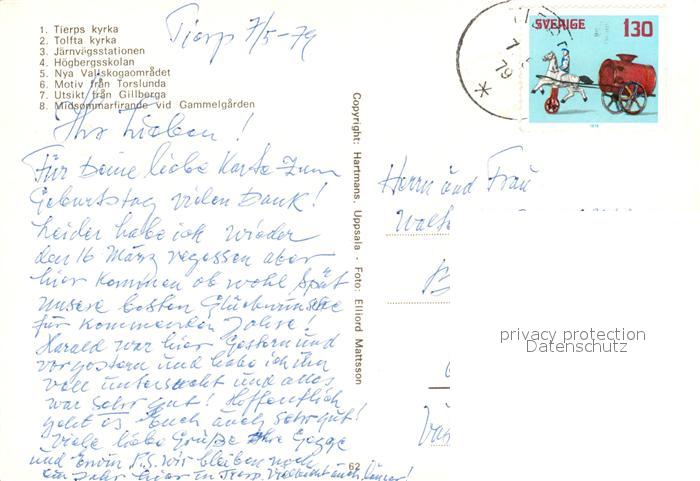 1. Tierps kyrka
2. Tolfta kyrka
3. Järnvägsstationen
4. Högbergsskolan
5. Nya Vallskogaområdet
6. Motiv från Torslunda
7. Utsikt från Gillberga
8. Midsommarfirande vid Gammelgården
Tierp 7/5-79
Ihr Lieben!
Für Deine liebe Karte zum
Geburtstag vielen Dank!
Leider habe ich wieder
den 16 März vegessen aber
hier kommen ob wohl spät
unsere besten Glückwünsche
für kommenden Jahre!
Harald war hier Gestern und
vorgestern und habe ich ihn
voll untersucht und alles
war sehr gut! Hoffentlich
geht es Euch auch sehr gut!
Viele liebe Grüße Ihre
und Erwin P.S. Wir bleiben noch
ein Jahr hier in Tierp. Vielleicht auch länger!
Copyright: Hartmans, Uppsala - Foto: Elliord Mattsson
62
SVERIGE 130
79
Herrn und Frau
privacy protection
Datenschutz